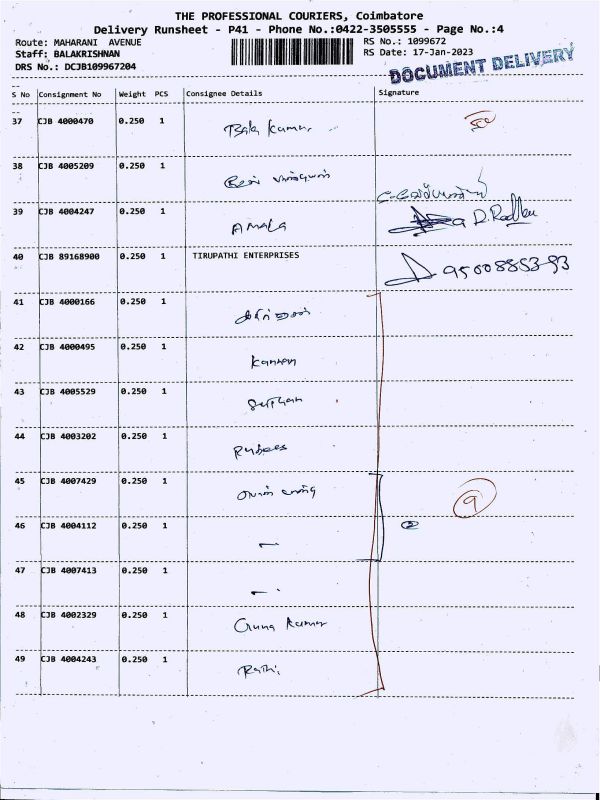 THE PROFESSIONAL COURIERS, Coimbatore
Delivery Runsheet - P41 - Phone No.:0422-3505555 - Page No.:4
Route: MAHARANI AVENUE
RS No.: 1099672
Staff: BALAKRISHNAN
RS Date: 17-Jan-2023
DRS No.: DCJB109967204
DOCUMENT DELIVERY
S No Consignment No Weight PCS Consignee Details Signature
37 CJB 4000470 0.250 1 Bala Kumar
38 CJB 4005209 0.250 1
39 CJB 4004247 0.250 1 AMALA
40 CJB 89168900 0.250 1 TIRUPATHI ENTERPRISES
41 CJB 4000166 0.250 1
42 CJB 4000495 0.250 1 Kannan
43 CJB 4005529 0.250 1
44 CJB 4003202 0.250 1
45 CJB 4007429 0.250 1 9
46 CJB 4004112 0.250 1 2
47 CJB 4007413 0.250 1
48 CJB 4002329 0.250 1 Guna Kumar
49 CJB 4004243 0.250 1